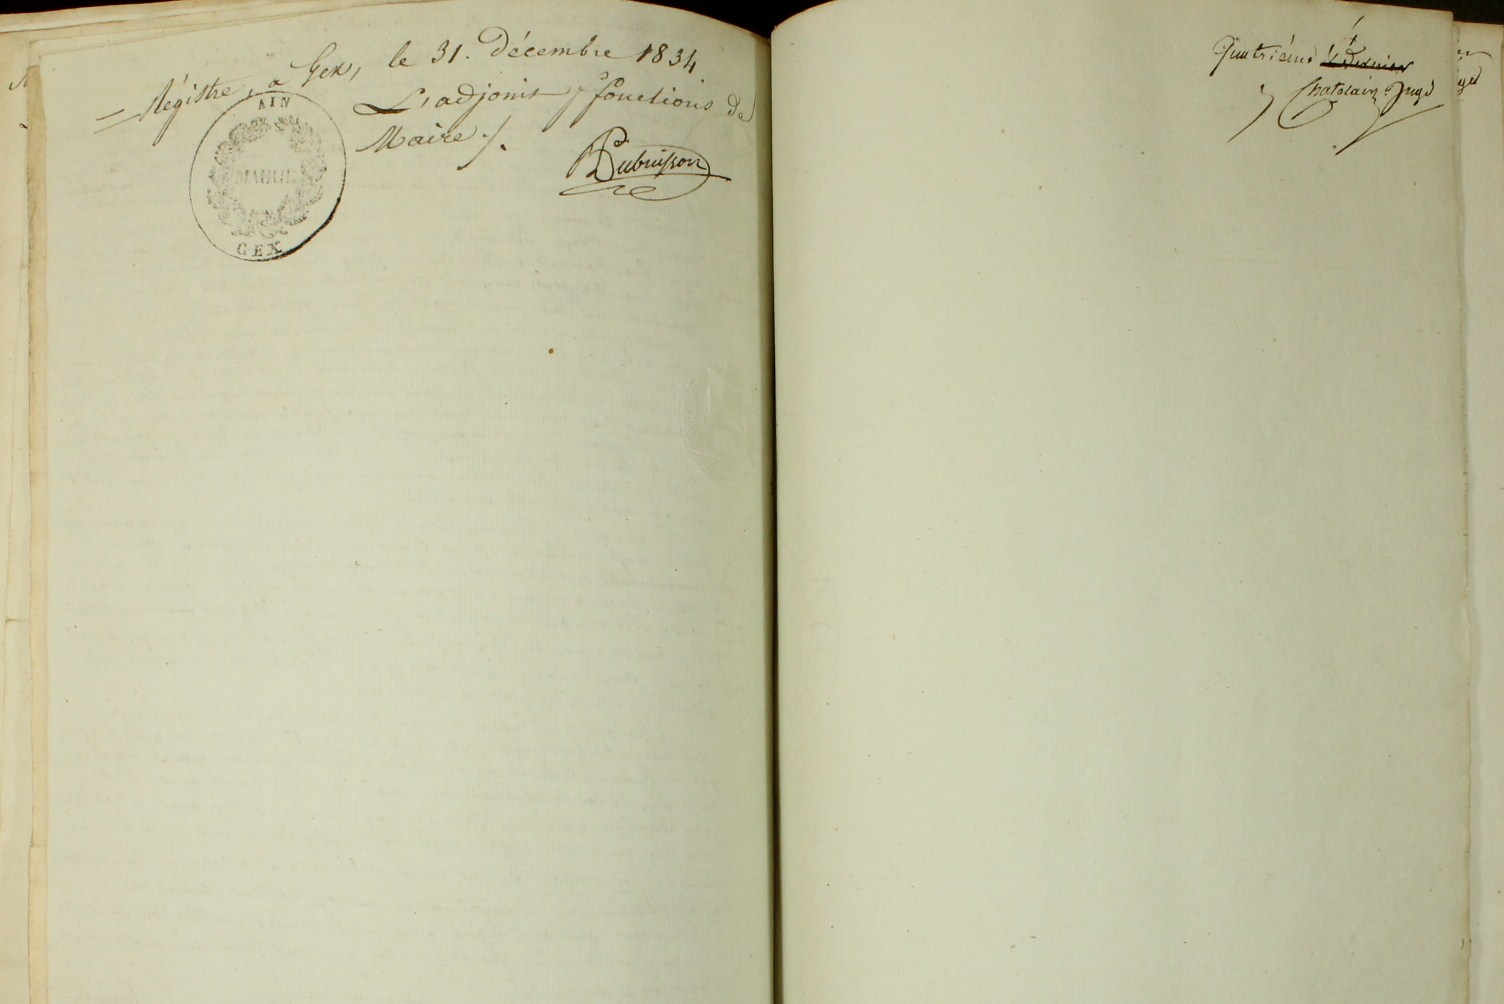 Régistre, à Gex, le 31. Décembre 1834.
L'adjoint ff fonctions de
Maire ./.
Dubuisson
AIN
MAIRIE
GEX
Quatriéme
Chatelain Juge